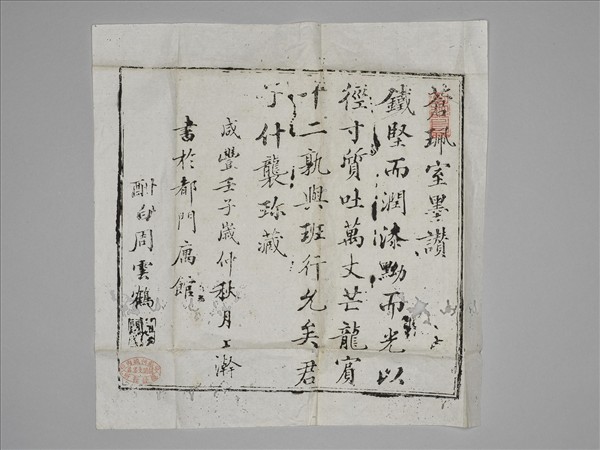 蒼珮室墨讚
鐵堅而潤漆黝而光以
徑寸質吐萬丈芒龍賓
十二孰與班行允矣君
子什襲珍藏
咸豐壬子歲仲秋月上澣
書於都門寓館
周雲鶴